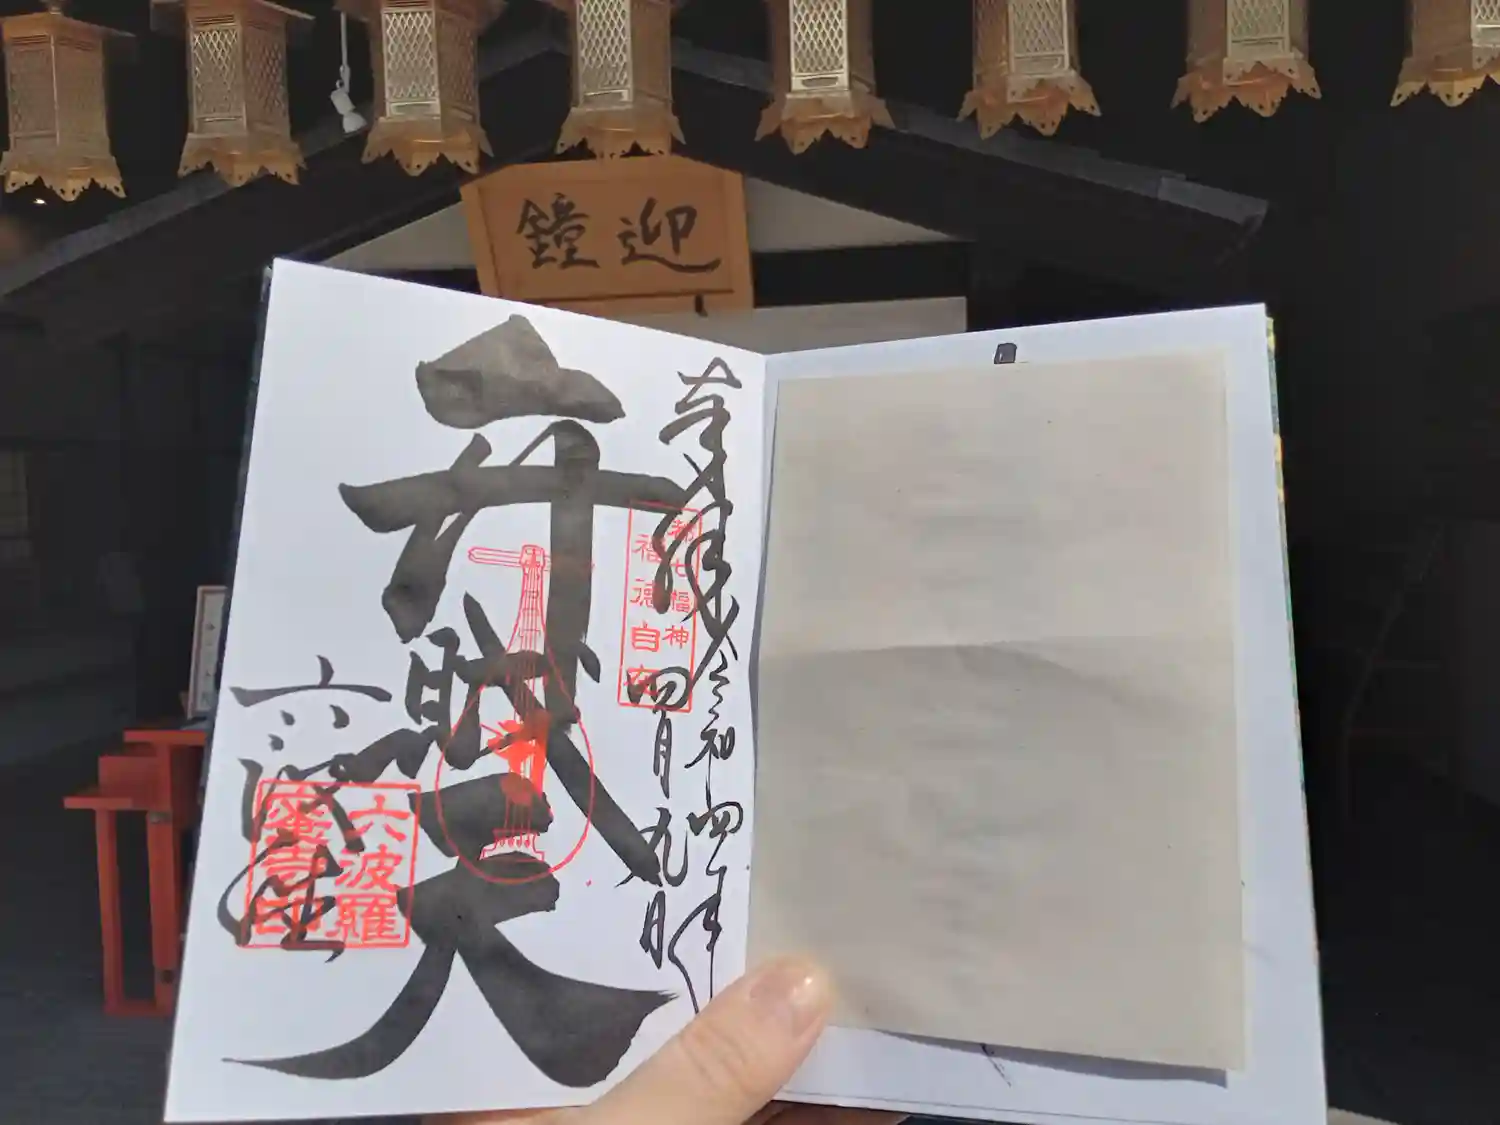 迎鐘
奉拝
令和四年
四月九日
都七福神
福徳自在
弁財天
六波羅
蜜寺印
六波